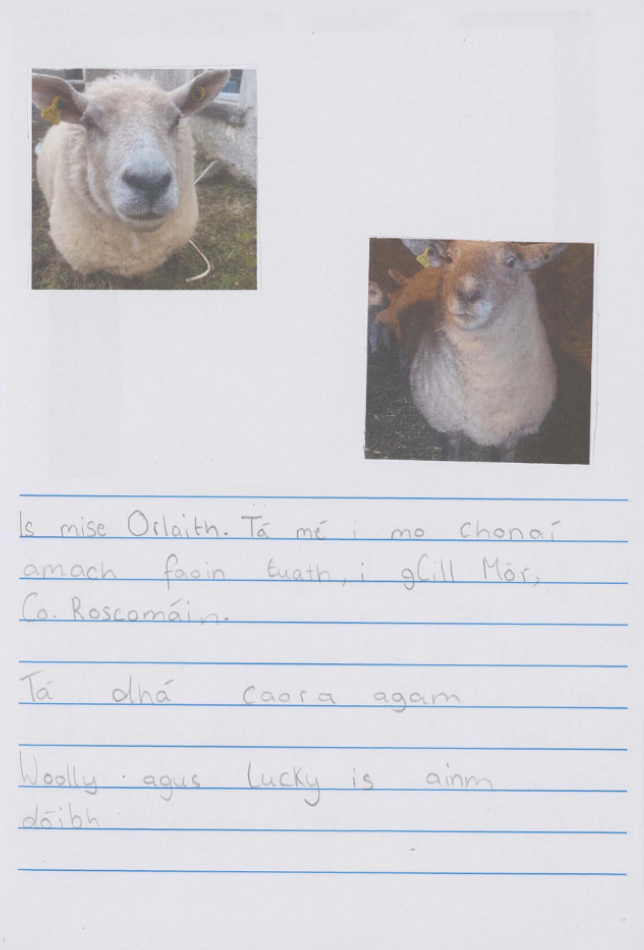 Is mise Orlaith. Tá mé i mo chonaí
amach faoin tuath, i gCill Mór,
Co. Roscomáin.
Tá dhá caora agam
Woolly agus Lucky is ainm
dóibh